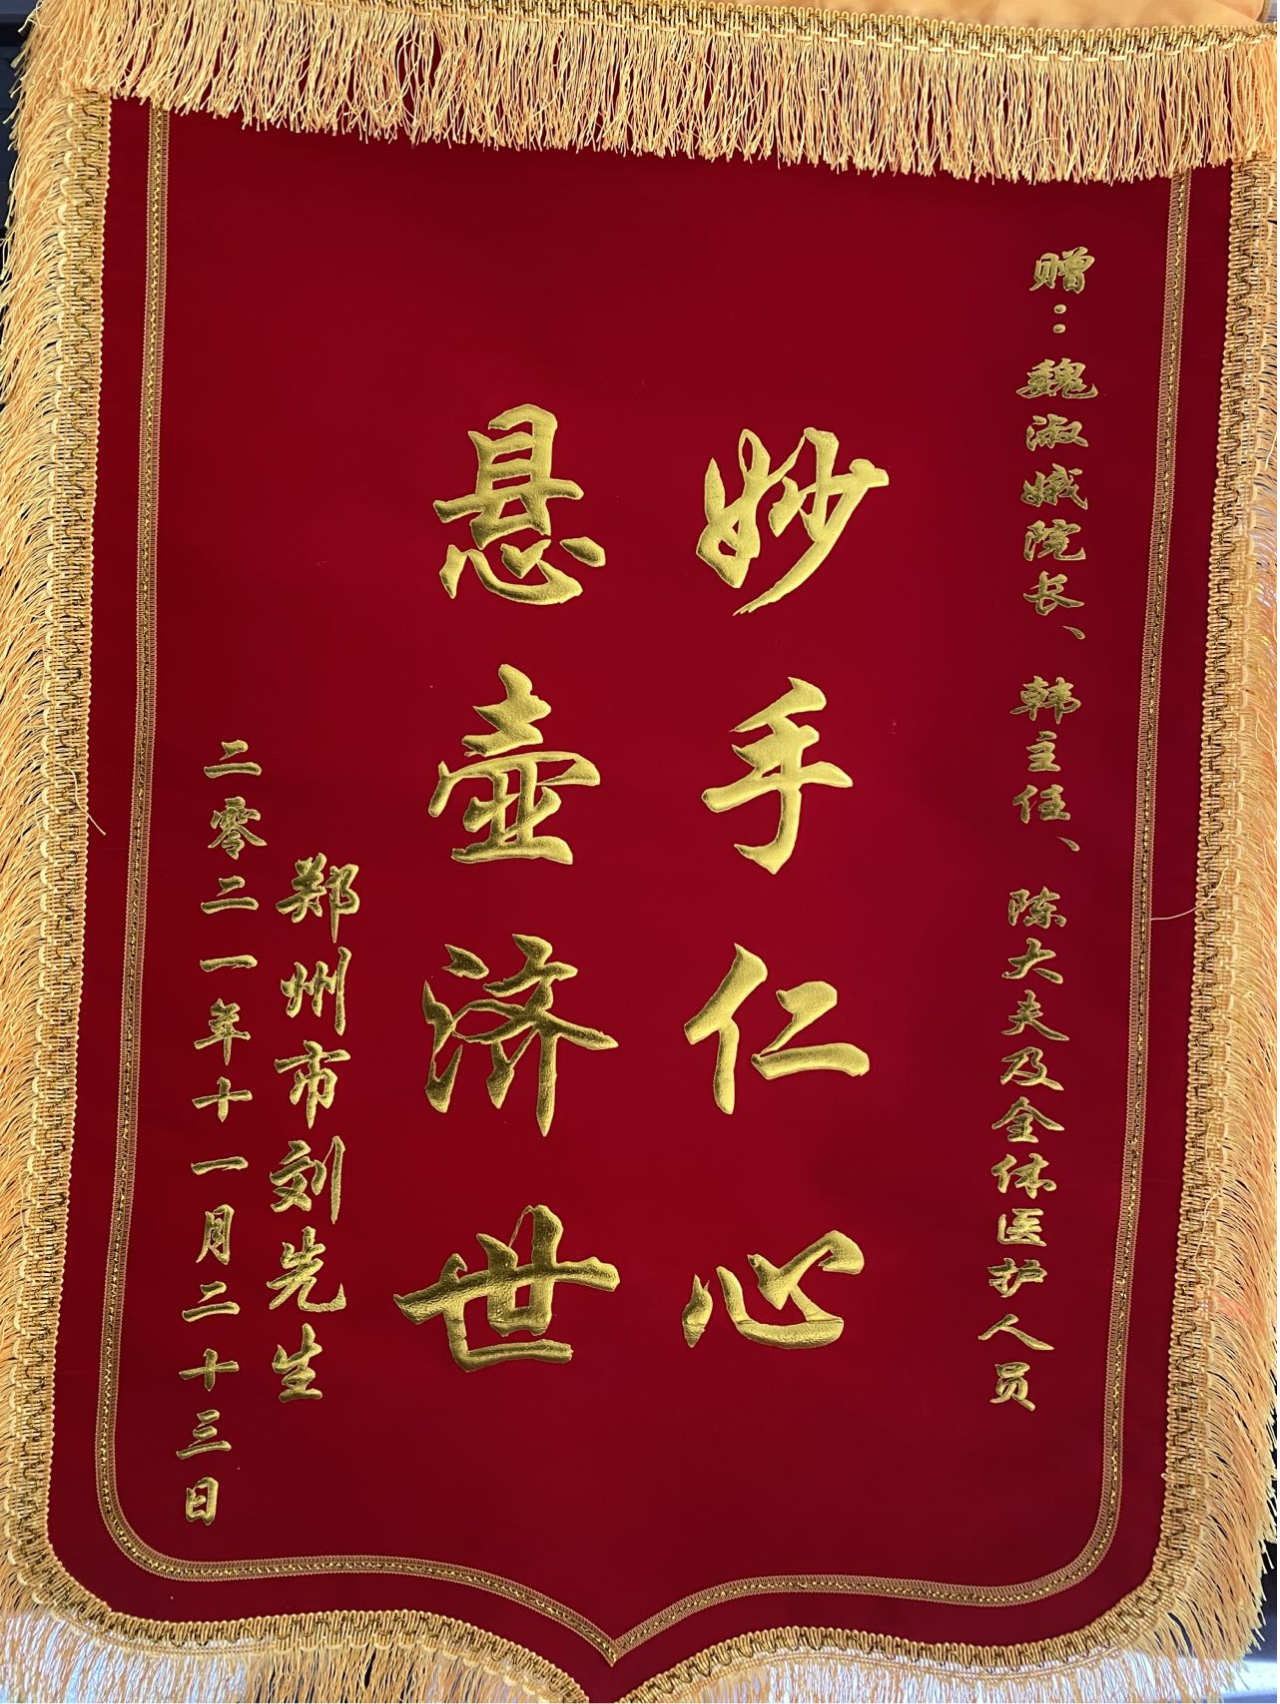 赠：魏淑娥院长、韩主任、陈大夫及全体医护人员
妙手仁心
悬壶济世
郑州市刘先生
二零二一年十一月二十三日